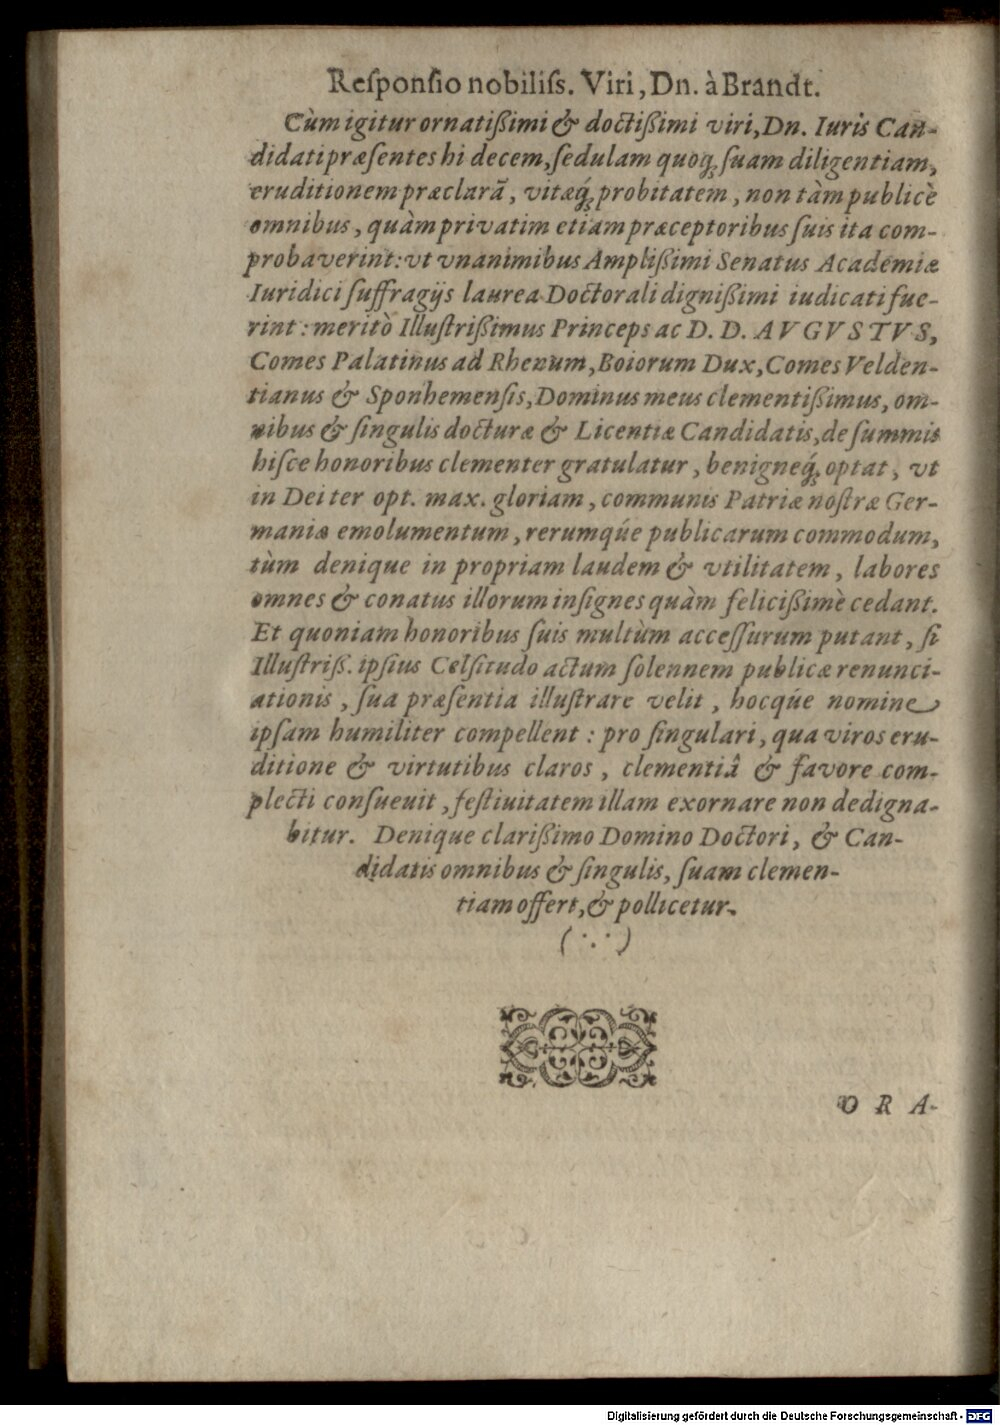 Reſponſio nobiliſs. Viri, Dn. à Brandt.
Cùm igitur ornatißimi & doctißimi viri, Dn. Iuris Can-
didati præſentes hi decem, ſedulam quoq́; ſuam diligentiam,
eruditionem præclarã, vitæq́; probitatem, non tàm publicè
omnibus, quàm privatim etiam præceptoribus ſuis ita com-
probaverint: vt vnanimibus Amplißimi Senatus Academiæ
Iuridici ſuffragijs laurea Doctorali dignißimi iudicati fue-
rint: meritò Illuſtrißimus Princeps ac D. D. AVGVSTVS,
Comes Palatinus ad Rhenum, Boiorum Dux, Comes Velden-
tianus & Sponhemenſis, Dominus meus clementißimus, om-
nibus & ſingulis docturæ & Licentiæ Candidatis, de ſummis
hiſce honoribus clementer gratulatur, benigneq́; optat, vt
in Dei ter opt. max. gloriam, communis Patriæ noſtræ Ger-
maniæ emolumentum, rerumqúe publicarum commodum,
tùm denique in propriam laudem & vtilitatem, labores
omnes & conatus illorum inſignes quàm feliciſſimè cedant.
Et quoniam honoribus ſuis multùm acceſſurum putant, ſi
Illuſtriß. ipſius Celſitudo actum ſolennem publicæ renunci-
ationis, ſua præſentia illuſtrare velit, hocqúe nomine
ipſam humiliter compellent: pro ſingulari, qua viros eru-
ditione & virtutibus claros, clementiâ & favore com-
plecti conſueuit, feſtiuitatem illam exornare non dedigna-
bitur. Denique clarißimo Domino Doctori, & Can-
didatis omnibus & ſingulis, ſuam clemen-
tiam offert, & pollicetur.
(∵)
ORA-
Digitalisierung gefördert durch die Deutsche Forschungsgemeinschaft - DFG